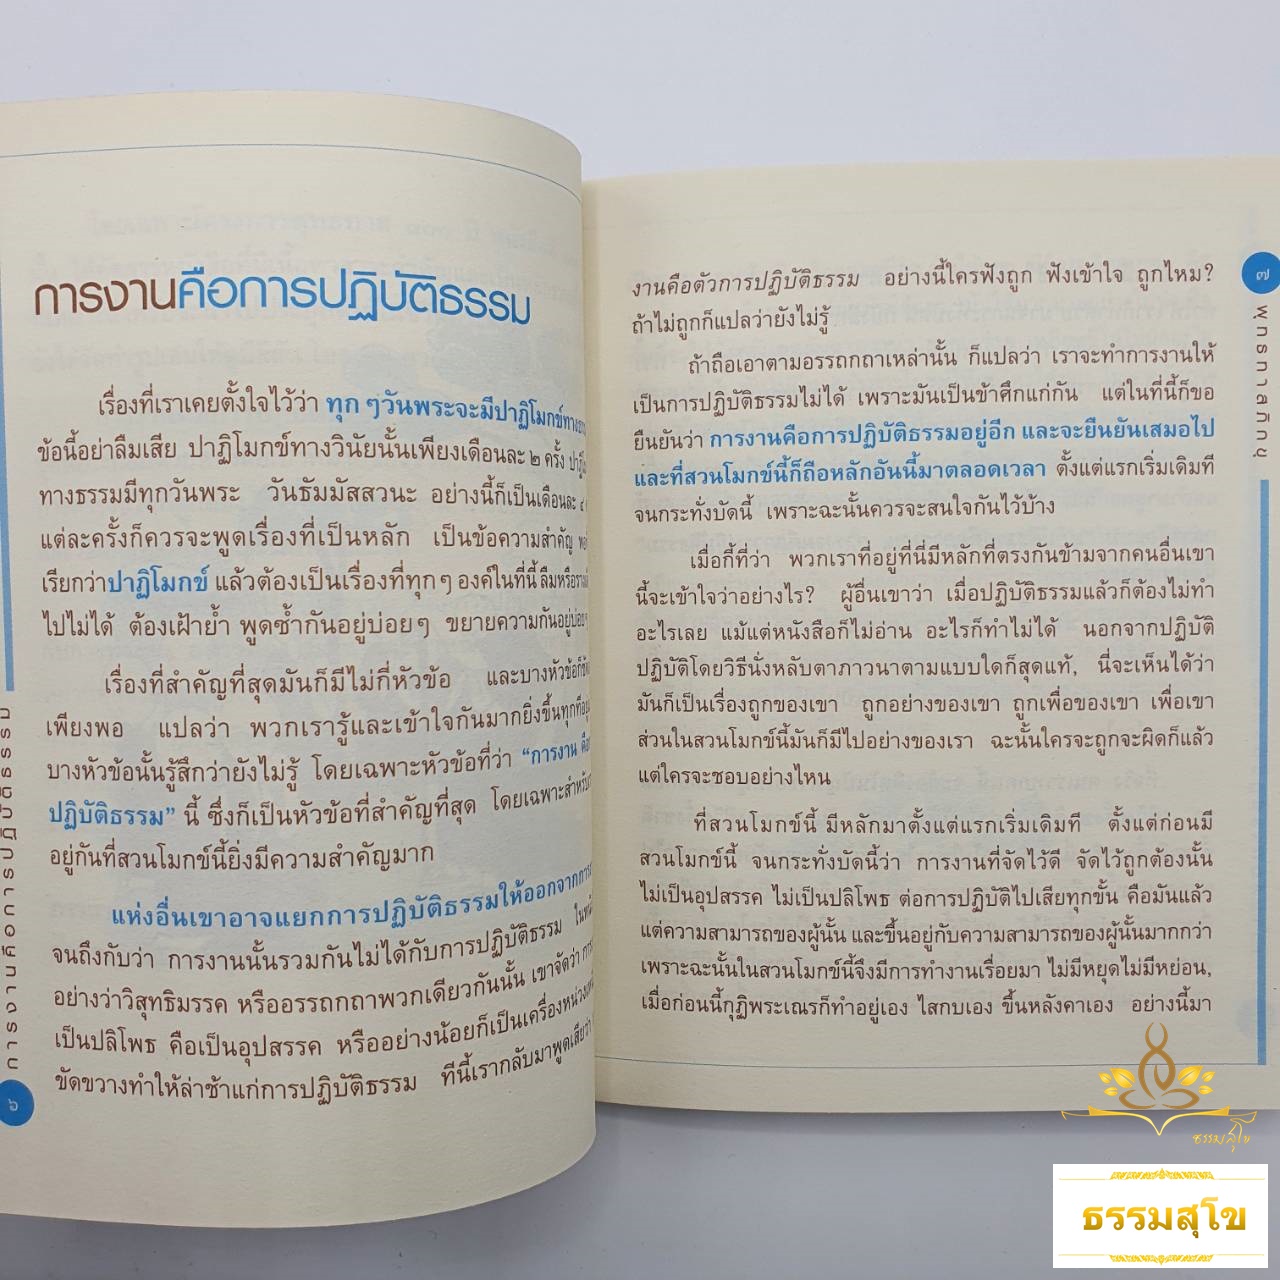 การงานคือการปฏิบัติธรรม
เรื่องที่เราเคยตั้งใจไว้ว่า ทุก ๆ วันพระจะมีปาฏิโมกข์ทาง
ข้อนี้อย่าลืมเสีย ปาฏิโมกข์ทางวินัยนั้นเพียงเดือนละ ๒ ครั้ง
ทางธรรมมีทุกวันพระ วันธัมมัสสวนะ อย่างนี้ก็เป็นเดือนละ ๔
แต่ละครั้งก็ควรจะพูดเรื่องที่เป็นหลัก เป็นข้อความสำคัญ
เรียกว่าปาฏิโมกข์ แล้วต้องเป็นเรื่องที่ทุกๆ องค์ในที่นี้ ลืมหรือ
ไปไม่ได้ ต้องเฝ้าย้ำ พูดซ้ำกันอยู่บ่อยๆ ขยายความกันอยู่บ่อยๆ
เรื่องที่สำคัญที่สุดมันก็มีไม่กี่หัวข้อ และบางหัวข้อก็
เพียงพอ แปลว่า พวกเรารู้และเข้าใจกันมากยิ่งขึ้นทุกที
บางหัวข้อนั้นรู้สึกว่ายังไม่รู้ โดยเฉพาะหัวข้อที่ว่า “การงาน คือ
ปฏิบัติธรรม” นี้ ซึ่งก็เป็นหัวข้อที่สำคัญที่สุด โดยเฉพาะสำหรับ
อยู่กันที่สวนโมกข์นี้ยิ่งมีความสำคัญมาก
แห่งอื่นเขาอาจแยกการปฏิบัติธรรมให้ออกจากการ
จนถึงกับว่า การงานนั้นรวมกันไม่ได้กับการปฏิบัติธรรม
อย่างว่าวิสุทธิมรรค หรืออรรถกถาพวกเดียวกันนั้น เขาจัดว่า
เป็นปลิโพธ คือเป็นอุปสรรค หรืออย่างน้อยก็เป็นเครื่องหน่วง
ขัดขวางทำให้ล่าช้าแก่การปฏิบัติธรรม ทีนี้เรากลับมาพูดเสียว่า
การงานคือการปฏิบัติธรรม
๖
งานคือตัวการปฏิบัติธรรม อย่างนี้ใครฟังถูก ฟังเข้าใจ ถูกไหม?
ถ้าไม่ถูกก็แปลว่ายังไม่รู้
ถ้าถือเอาตามอรรถกถาเหล่านั้น ก็แปลว่า เราจะทำการงานให้
เป็นการปฏิบัติธรรมไม่ได้ เพราะมันเป็นข้าศึกแก่กัน แต่ในที่นี้ก็ขอ
ยืนยันว่า การงานคือการปฏิบัติธรรมอยู่อีก และจะยืนยันเสมอไป
และที่สวนโมกข์นี้ก็ถือหลักอันนี้มาตลอดเวลา ตั้งแต่แรกเริ่มเดิมที
จนกระทั่งบัดนี้ เพราะฉะนั้นควรจะสนใจกันไว้บ้าง
เมื่อกี้ที่ว่า พวกเราที่อยู่ที่นี่มีหลักที่ตรงกันข้ามจากคนอื่นเขา
นี้จะเข้าใจว่าอย่างไร? ผู้อื่นเขาว่า เมื่อปฏิบัติธรรมแล้วก็ต้องไม่ทำ
อะไรเลย แม้แต่หนังสือก็ไม่อ่าน อะไรก็ทำไม่ได้ นอกจากปฏิบัติ
ปฏิบัติโดยวิธีนั่งหลับตาภาวนาตามแบบใดก็สุดแท้, นี่จะเห็นได้ว่า
มันก็เป็นเรื่องถูกของเขา ถูกอย่างของเขา ถูกเพื่อของเขา เพื่อเขา
ส่วนในสวนโมกข์นี้มันก็มีไปอย่างของเรา ฉะนั้นใครจะถูกจะผิดก็แล้ว
แต่ใครจะชอบอย่างไหน
ที่สวนโมกข์นี้ มีหลักมาตั้งแต่แรกเริ่มเดิมที ตั้งแต่ก่อนมี
สวนโมกข์นี้ จนกระทั่งบัดนี้ว่า การงานที่จัดไว้ดี จัดไว้ถูกต้องนั้น
ไม่เป็นอุปสรรค ไม่เป็นปลิโพธ ต่อการปฏิบัติไปเสียทุกขั้น คือมันแล้ว
แต่ความสามารถของผู้นั้น และขึ้นอยู่กับความสามารถของผู้นั้นมากกว่า
เพราะฉะนั้นในสวนโมกข์นี้จึงมีการทำงานเรื่อยมา ไม่มีหยุดไม่มีหย่อน,
เมื่อก่อนนี้กุฏิพระเณรก็ทำอยู่เอง ไสกบเอง ขึ้นหลังคาเอง อย่างนี้มา
๗
พุทธทาสภิกขุ
ธรรมสุโข
ธรรมสุโข